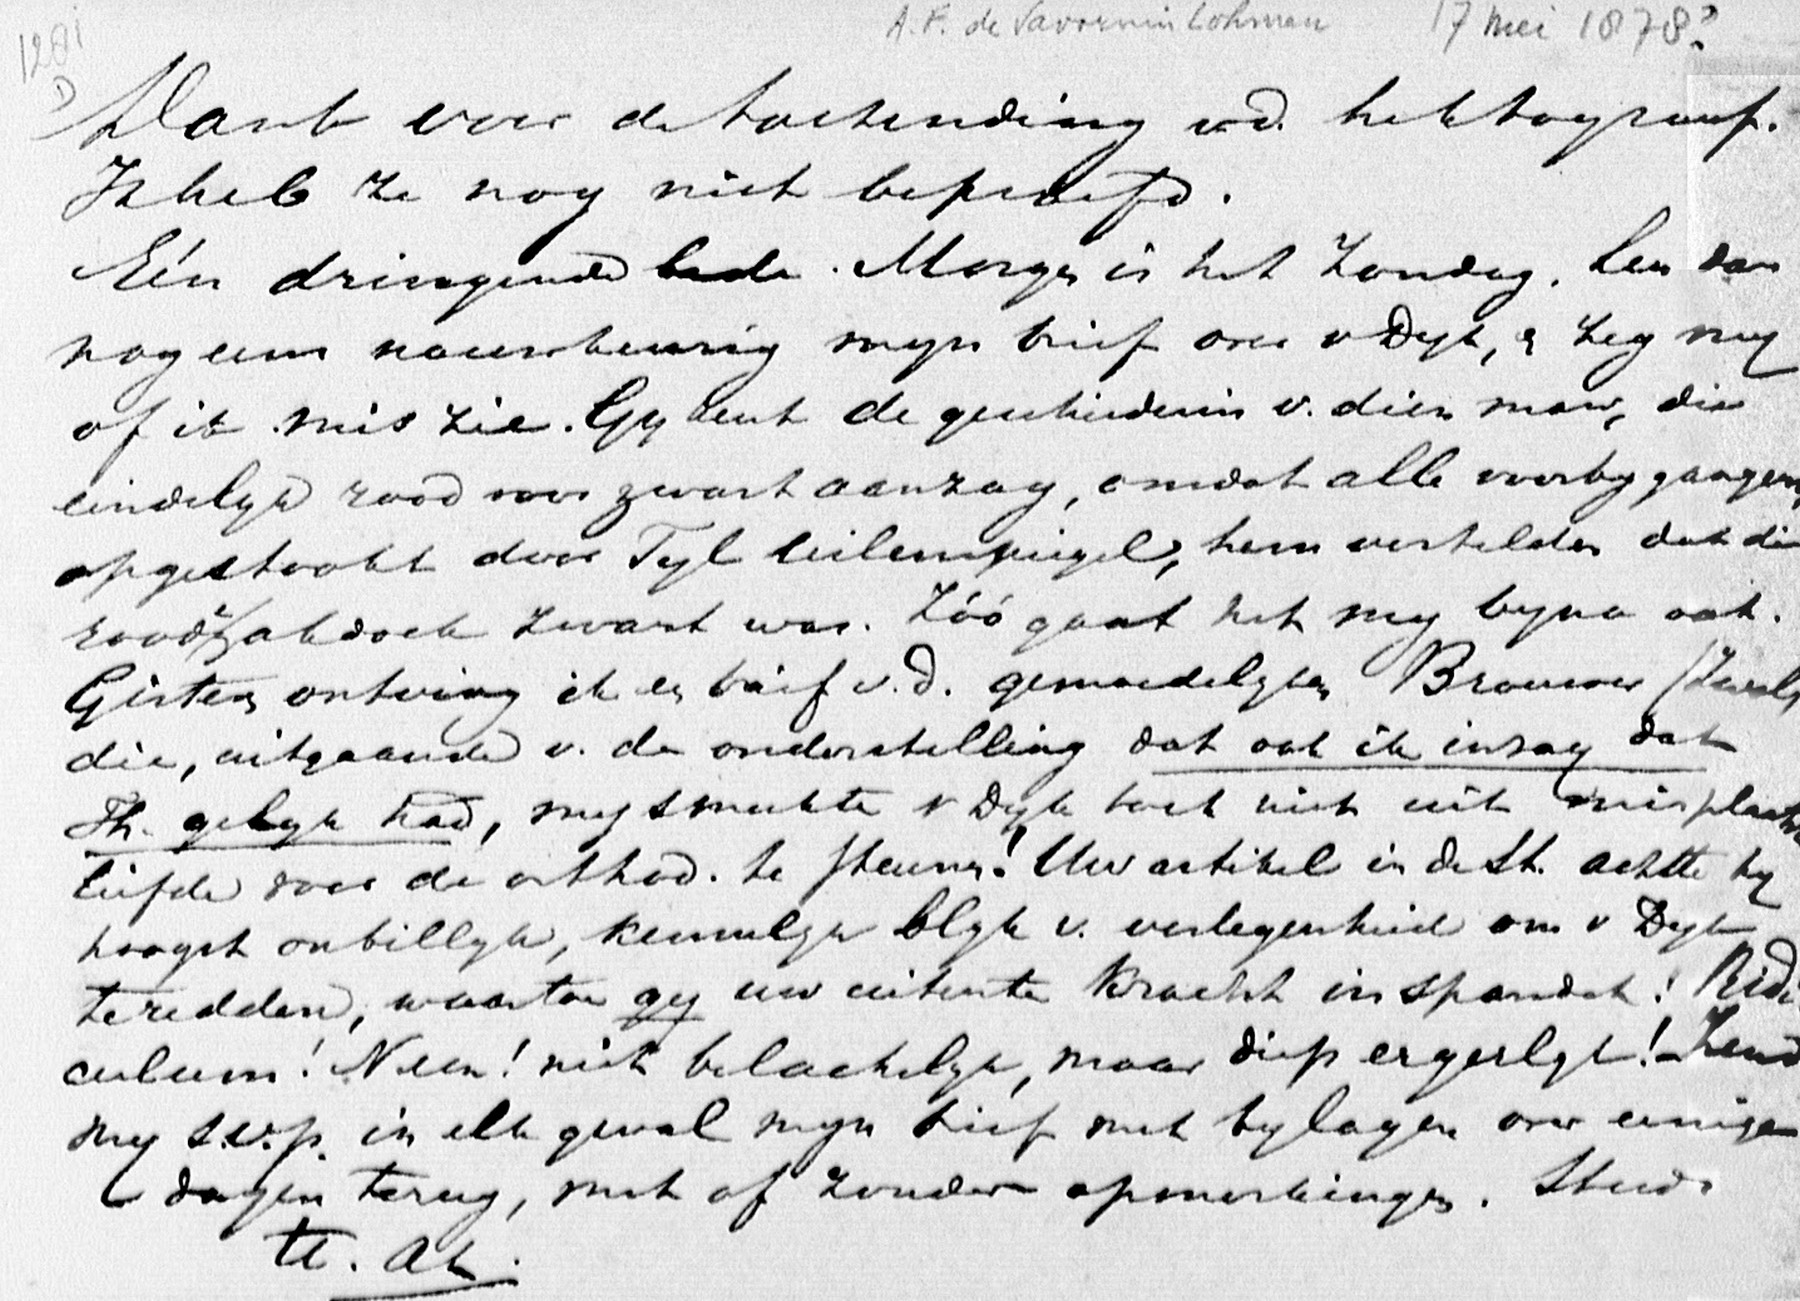 A.F. de Savornin Lohman 17 Mei 1878?
Dank voor de toezending v.d. hektograaf.
Ik heb ze nog niet beproefd.
Eén dringende bede. Morgen is het Zondag. Lees dan
nog eens nauwkeurig mijn brief over v Dyk, & zeg my
of ik mis zie. Gy kent de geschiedenis v. dien man, die
eindelyk rood voor zwart aanzag, omdat alle voorbygangers,
opgestookt door Tyl Uilenspiegel, hem vertelden dat die
roode zakdoek zwart was. Zóó gaat het my byna ook.
Gisteren ontving ik een brief v.d. gemoedelyken Brouwer
die, uitgaande v. de onderstelling dat ook ik inzag dat
Th. gelyk had, my smeekte v Dyk toch niet uit misplaatste
liefde voor de orthod. te steunen! Uw artikel in de St. achtte hy
hoogst onbillyk, kennelyk blyk v. verlegenheid om v Dyk
te redden, waartoe gy uw uiterste kracht inspandet! Ridi-
culum! Neen! niet belachelyk, maar diep ergerlyk! - Zend
my s.v.p. in elk geval myn brief met bylagen over eenige
dagen terug, met of zonder opmerkingen. Steeds
tt. AL.